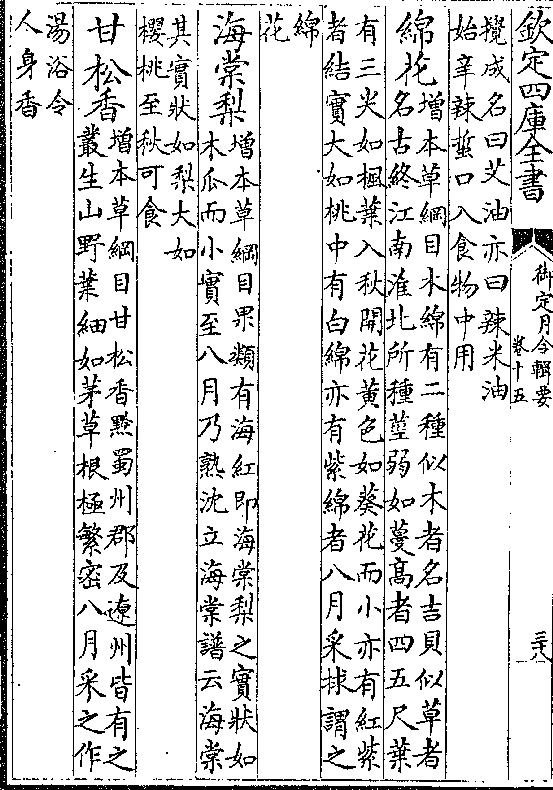 欽定四庫全書
御定月令輯要
卷十五
三十八
攪成名曰艾油亦曰辣米油
始辛辣蜇口入食物中用
綿花
增本草綱目木綿有二種似木者名吉貝似草者
名古終江南淮北所種莖弱如蔓高者四五尺葉
有三尖如楓葉入秋開花黃色如葵花而小亦有紅紫
者結實大如桃中有白綿亦有紫綿者八月采梂謂之
綿
花
海棠梨
增本草綱目果類有海紅即海棠梨之實狀如
木瓜而小實至八月乃熟沈立海棠譜云海棠
其實狀如梨大如
櫻桃至秋可食
甘松香
增本草綱目甘松香黔蜀州郡及遼州皆有之
叢生山野葉細如茅草根極繁密八月采之作
湯浴令
人身香